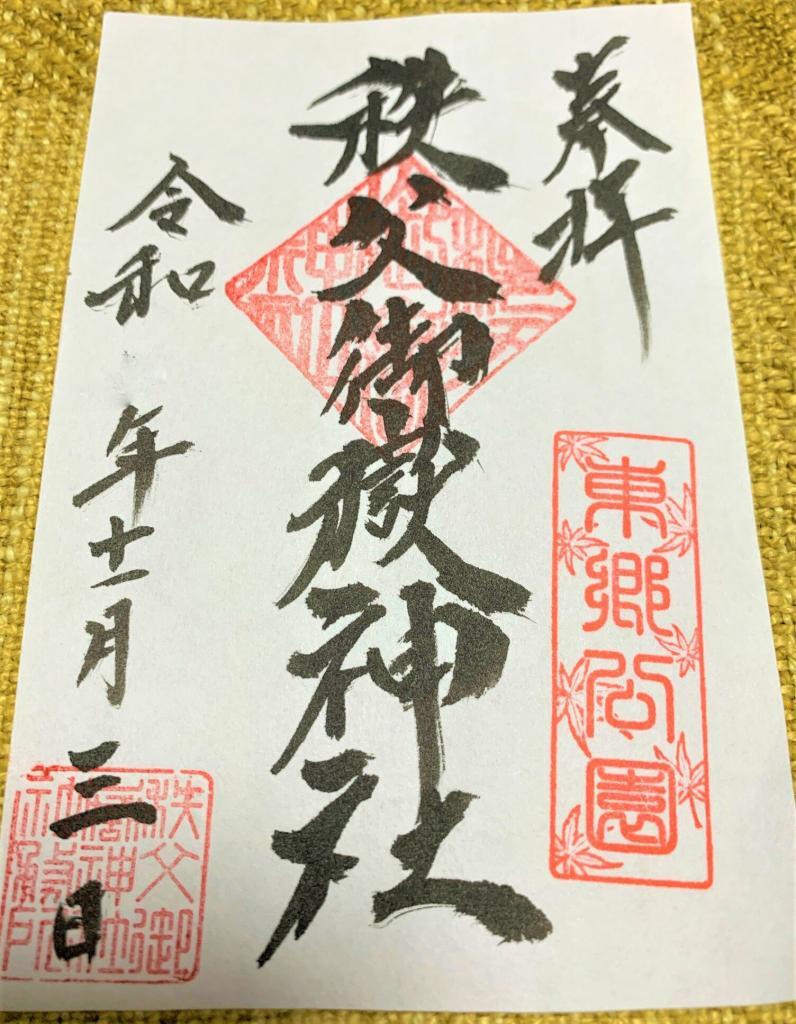 奉拝
東郷公園
秩父御嶽神社
令和 年十一月三日
秩父御
嶽神社
社務所